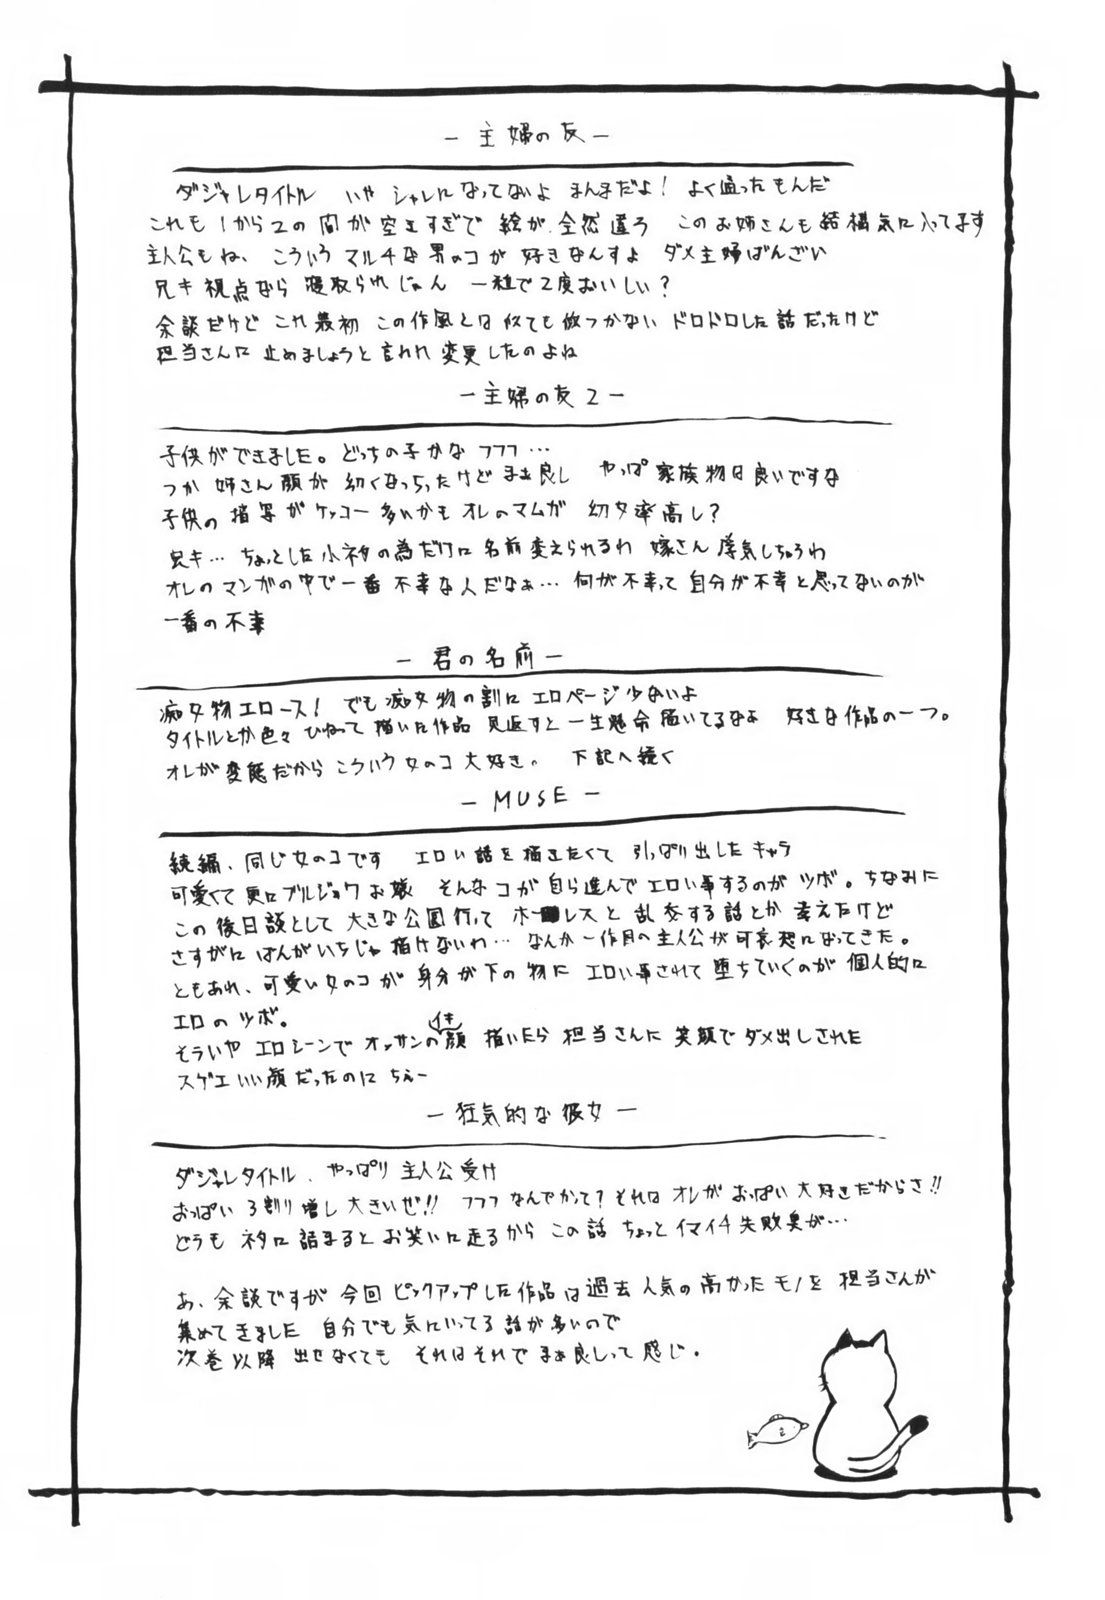 －主婦の友－
ダジャレタイトル いや シャレになってないよ まんまだよ！ よく通ったもんだ
これも1から2の間が空きすぎで 絵が全然違う このお姉さんも結構気に入ってます
主人公もね、こういう マルチな男のコが 好きなんすよ ダメ主婦ばんざい
兄キ視点なら 寝取られじゃん 一粒で2度おいしい？
余談だけど これ最初 この作風とは 似ても似つかない ドロドロした話だったけど
担当さんに 止めましょうと言われ 変更したのよね
－主婦の友2－
子供ができました。どっちの子かな フフフ…
つか 姉さん顔が 幼くなっちったけど まぁ良し やっぱ 家族物は良いですな
子供の 描写が ケッコー 多いかも オレのマンガ 幼女率高し？
兄キ… ちょっとした小ネタの為だけに 名前変えられるわ 嫁さん 浮気しちゃうわ
オレのマンガの中で一番 不幸な人だなぁ… 何が不幸って 自分が不幸と思ってないのが
一番の不幸
－君の名前－
痴女物エロース！ でも痴女物の割に エロページ少ないよ
タイトルとか色々 ひねって 描いた作品 見返すと 一生懸命 描いてるなぁ 好きな作品の一つ。
オレが変態だから こういう女のコ大好き。 下記へ続く
－MUSE－
続編、同じ女のコです エロい話を描きたくて 引っぱり出したキャラ
可愛くて 更にブルジョワお嬢 そんなコが自ら進んで エロい事するのが ツボ。ちなみに
この後日談として 大きな公園行って ホームレスと 乱交する話とか 考えたけど
さすがに ばんがいちじゃ 描けないわ… なんか一作目の主人公が可哀想になってきた。
ともあれ、可愛い女のコが 身分が下の物に エロい事されて 堕ちていくのが 個人的に
エロのツボ。
そういや エロシーンで オッサンのイキ顔 描いたら 担当さんに 笑顔で ダメ出しされた
スゲエいい顔だったのに ちぇー
－狂気的な彼女－
ダジャレタイトル、やっぱり 主人公受け
おっぱい 3割り増し 大きいぜ!! フフフ なんでかって？ それは オレが おっぱい 大好きだからさ!!
どうも ネタに 詰まると お笑いに走るから この話 ちょっとイマイチ 失敗臭が…
あ、余談ですが 今回 ピックアップした作品は 過去 人気の高かったモノを 担当さんが
集めてきました 自分でも気にいってる話が多いので
次巻以降 出せなくても それはそれで まぁ良しって感じ。